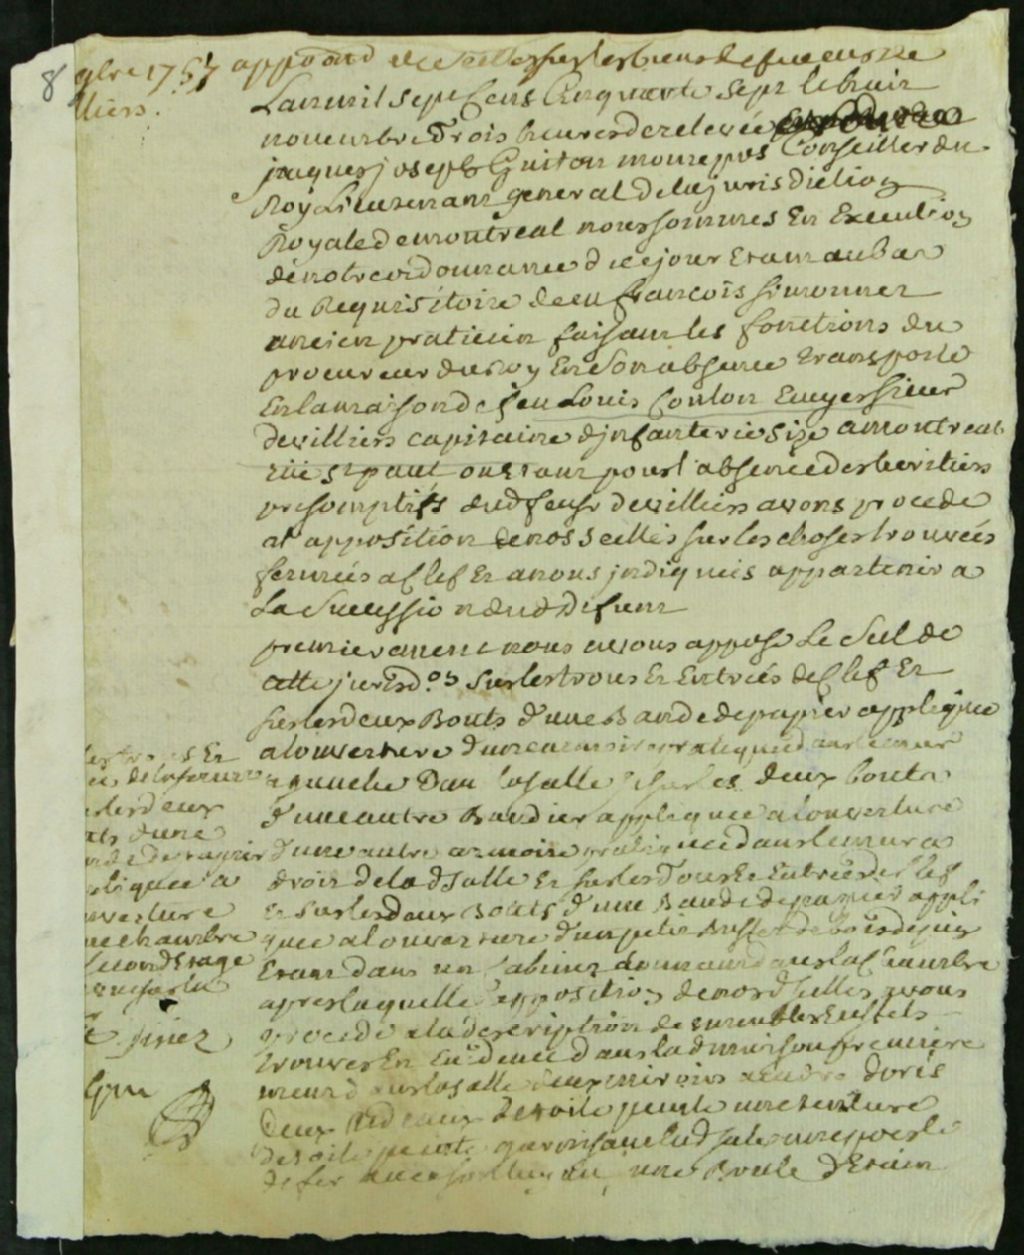 8
9bre 1757 appo͞on de Scellés sur les biens de feu mr de
lliers.
Lan mil sept Cens Cinquante sept le huit
novembre Trois heures de relevée
jacques joseph Guiton monrepos Conseiller du
Roy Lieutenant general de la jurisdiction
Royale de montreal nous sommes En Execution
de notre ordonnance de ce jour Etant au bas
du Requisitoire de me francois simonnet
ancien praticien faisant les fonctions du
procureur du Roy En Son absence transporté
En la maison de feu Louis Coulon Ecuyer sieur
de villiers capitaine d'jnfanterie size a montreal
rüe st paul ou Etant pour l'absence des heritiers
presomptifs dud feu sr de villiers avons procedé
a l'apposition de nos scellés sur les choses trouvées
fermées a clef Et a nous jndiquées appartenir a
La Succession dud defunt
premierement nous avons apposé Le Scel de
cette jurisd.on sur les trous Et Entrées de clef Et
sur les deux Bouts d'une Bande de papier appliquée
a l'ouverture d'une armoire pratiquée dans le mur
a gauche Dans la salle sur les deux bouts
d'une autre Bande appliquée a l'ouverture
d'une autre armoire pratiquée dans le mur a
droit de lad Salle Et sur les Trous Et Entrées de clef
Et sur les deux Bouts d'une Bande de papier appli
quée a l'ouverture d'un petit Buffet de bois de pin
Etant dans un Cabinet donnant dans la chambre
apres laquelle apposition de nosd scellés avons
procedé a la description des meubles Et effets
trouvés En Evidence dans lad maison premiere
ment dans la salle deux miroirs a cadre dorés
deux Rideaux de toile peinte une tenture
de toile peinte garnissant lad sale une poesle
de fer avec son tuyau une Boule d'Etain
les trous Et
ées de la serrure
sur les deux
uts d'une
nde de papier
pliquée a
uverture
ne chambre
second Etage
sur la
Gui